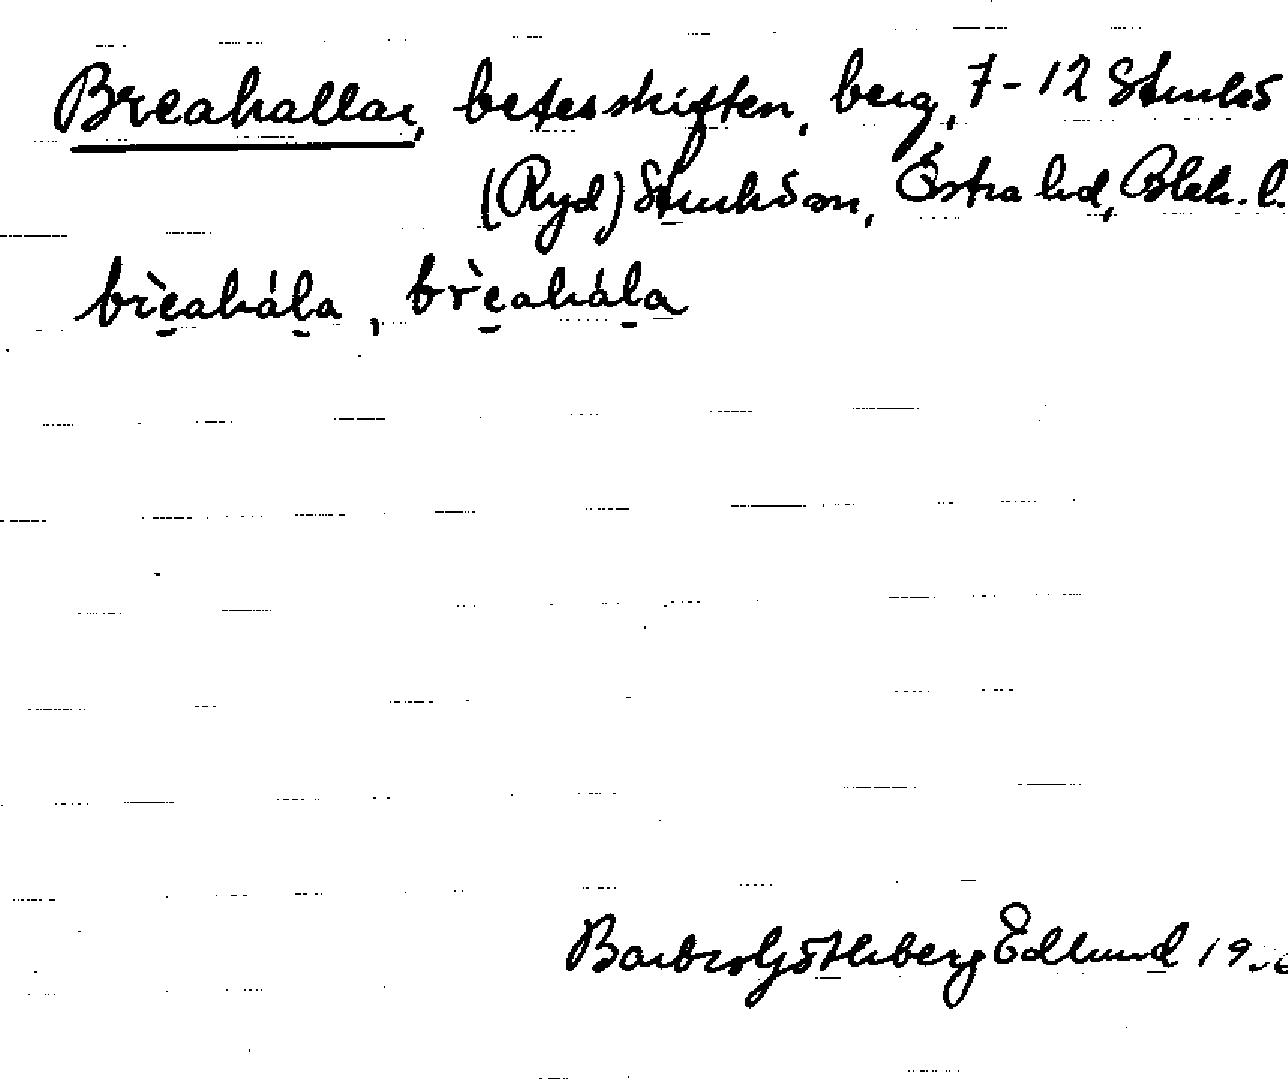 Breahallar, betesskiften, berg, 7-12 Sturkö
(Ryd) Sturkö sn, Östra hd, Blek. l.
brèahála, brèahála
Barbro Götheberg Edlund 19